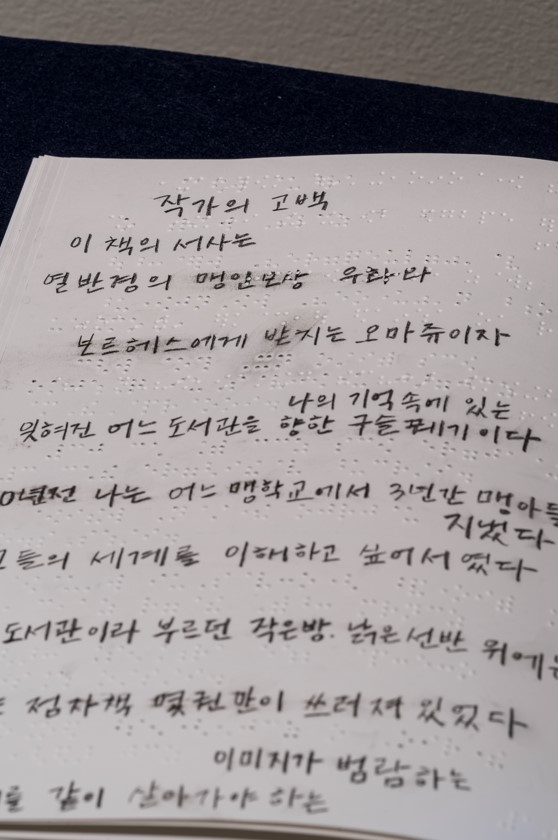 작가의 고백
이 책의 서사는
열반경의 맹인모상 우화와
보르헤스에게 바치는 오마쥬이자
나의 기억속에 있는
잊혀진 어느 도서관을 향한
전 나는 어느 맹학교에서 3년간
지냈다
들의 세계를 이해하고 싶어서 였다
도서관이라 부르던 작은방. 낡은선반 위에
점자책 몇권만이 쓰러져 있었다
이미지가 범람하는
같이 살아가야 하는